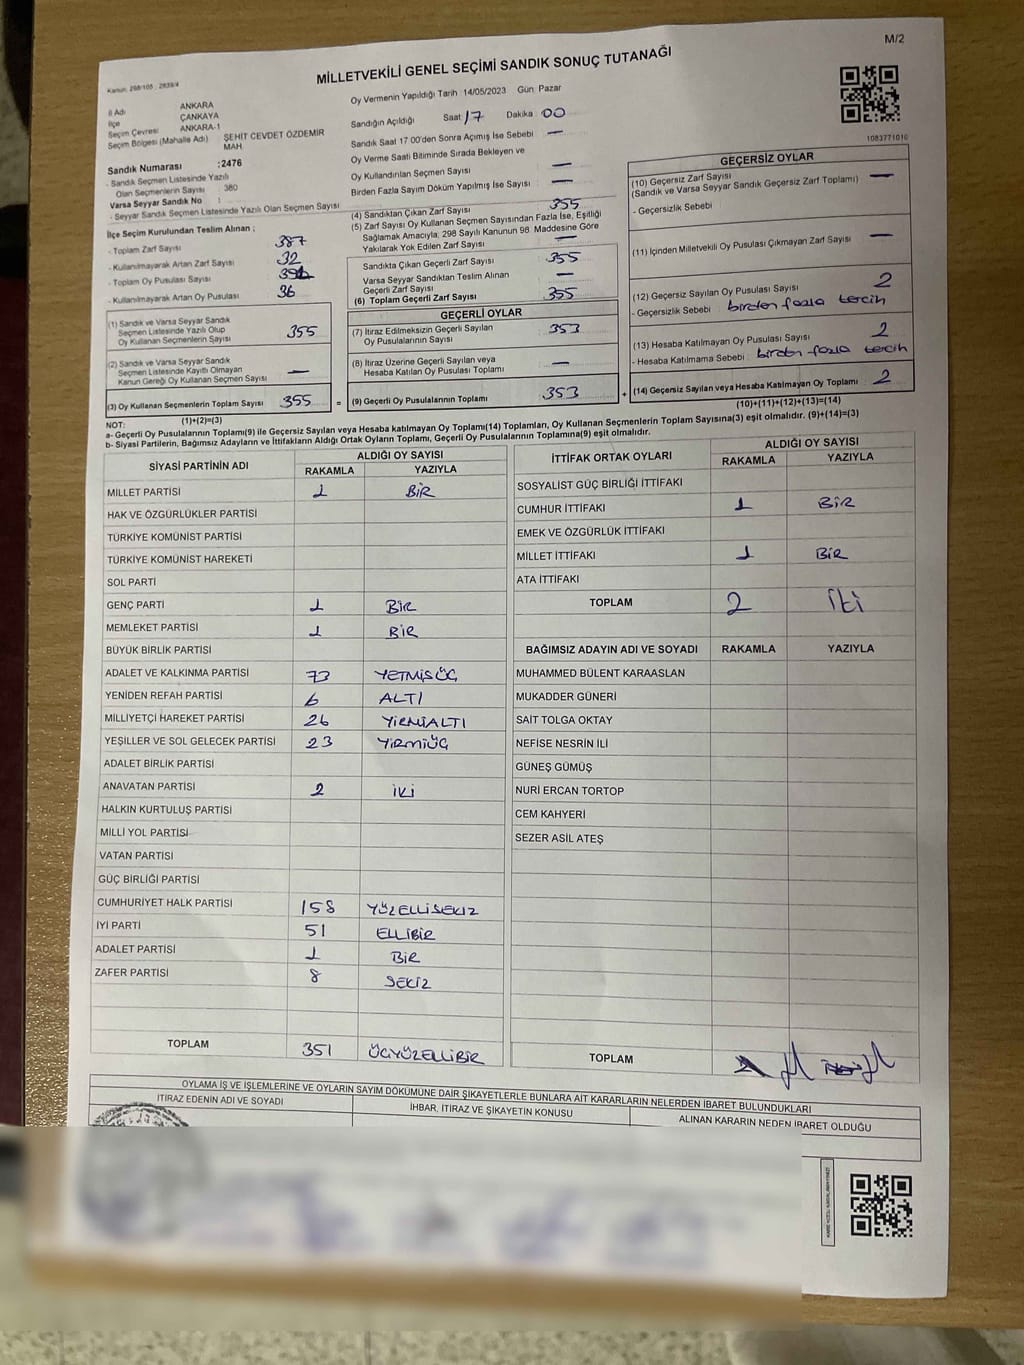 M/2
MİLLETVEKİLİ GENEL SEÇİMİ SANDIK SONUÇ TUTANAĞI
İl Adı ANKARA
İlçe ÇANKAYA
Seçim Çevresi ANKARA-1
Seçim Bölgesi (Mahalle Adı) ŞEHİT CEVDET ÖZDEMİR MAH.
Sandık Numarası :2476
- Sandık Seçmen Listesinde Yazılı
Olan Seçmenlerin Sayısı 380
Varsa Seyyar Sandık No :
- Seyyar Sandık Seçmen Listesinde Yazılı Olan Seçmen Sayısı
İlçe Seçim Kurulundan Teslim Alınan ;
- Toplam Zarf Sayısı 387
- Kullanılmayarak Artan Zarf Sayısı 32
- Toplam Oy Pusulası Sayısı
- Kullanılmayarak Artan Oy Pusulası 36
(1) Sandık ve Varsa Seyyar Sandık
Seçmen Listesinde Yazılı Olup
Oy Kullanan Seçmenlerin Sayısı 355
(2) Sandık ve Varsa Seyyar Sandık
Seçmen Listesinde Kayıtlı Olmayan
Kanun Gereği Oy Kullanan Seçmen Sayısı —
(3) Oy Kullanan Seçmenlerin Toplam Sayısı 355 =
(1)+(2)=(3)
Oy Vermenin Yapıldığı Tarih :14/05/2023 Gün Pazar
Sandığın Açıldığı Saat 17 Dakika 00
Sandık Saat 17 00'den Sonra Açımış İse Sebebi —
Oy Verme Saati Bitiminde Sırada Bekleyen ve
Oy Kullandırılan Seçmen Sayısı —
Birden Fazla Sayım Döküm Yapılmış İse Sayısı —
(4) Sandıktan Çıkan Zarf Sayısı 355
(5) Zarf Sayısı Oy Kullanan Seçmen Sayısından Fazla İse, Eşitliği
Sağlamak Amacıyla, 298 Sayılı Kanunun 98. Maddesine Göre
Yakılarak Yok Edilen Zarf Sayısı —
Sandıkta Çıkan Geçerli Zarf Sayısı 355
Varsa Seyyar Sandıktan Teslim Alınan
Geçerli Zarf Sayısı —
(6) Toplam Geçerli Zarf Sayısı 355
GEÇERLİ OYLAR
(7) İtiraz Edilmeksizin Geçerli Sayılan
Oy Pusulalarının Sayısı 353
(8) İtiraz Üzerine Geçerli Sayılan veya
Hesaba Katılan Oy Pusulası Toplamı —
(9) Geçerli Oy Pusulalarının Toplamı 353 +
1083771010
GEÇERSİZ OYLAR
(10) Geçersiz Zarf Sayısı —
(Sandık ve Varsa Seyyar Sandık Geçersiz Zarf Toplamı)
- Geçersizlik Sebebi
(11) İçinden Milletvekili Oy Pusulası Çıkmayan Zarf Sayısı —
(12) Geçersiz Sayılan Oy Pusulası Sayısı 2
- Geçersizlik Sebebi birden fazla tercih
(13) Hesaba Katılmayan Oy Pusulası Sayısı 2
- Hesaba Katılmama Sebebi : birden fazla tercih
(14) Geçersiz Sayılan veya Hesaba Katılmayan Oy Toplamı 2
(10)+(11)+(12)+(13)=(14)
NOT:
a- Geçerli Oy Pusulalarının Toplamı(9) ile Geçersiz Sayılan veya Hesaba katılmayan Oy Toplamı(14) Toplamları, Oy Kullanan Seçmenlerin Toplam Sayısına(3) eşit olmalıdır. (9)+(14)=(3)
b- Siyasi Partilerin, Bağımsız Adayların ve İttifakların Aldığı Ortak Oyların Toplamı, Geçerli Oy Pusulalarının Toplamına(9) eşit olmalıdır.
SİYASİ PARTİNİN ADI ALDIĞI OY SAYISI
RAKAMLA YAZIYLA
MİLLET PARTİSİ 1 BİR
HAK VE ÖZGÜRLÜKLER PARTİSİ
TÜRKİYE KOMÜNİST PARTİSİ
TÜRKİYE KOMÜNİST HAREKETİ
SOL PARTİ
GENÇ PARTİ 1 BİR
MEMLEKET PARTİSİ 1 BİR
BÜYÜK BİRLİK PARTİSİ
ADALET VE KALKINMA PARTİSİ 73 YETMİŞÜÇ
YENİDEN REFAH PARTİSİ 6 ALTI
MİLLİYETÇİ HAREKET PARTİSİ 26 YİRMİALTI
YEŞİLLER VE SOL GELECEK PARTİSİ 23 YİRMİÜÇ
ADALET BİRLİK PARTİSİ
ANAVATAN PARTİSİ 2 İKİ
HALKIN KURTULUŞ PARTİSİ
MİLLİ YOL PARTİSİ
VATAN PARTİSİ
GÜÇ BİRLİĞİ PARTİSİ
CUMHURİYET HALK PARTİSİ 158 YÜZELLİSEKİZ
İYİ PARTİ 51 ELLİBİR
ADALET PARTİSİ 1 BİR
ZAFER PARTİSİ 8 SEKİZ
TOPLAM 351 ÜÇYÜZELLİBİR
İTTİFAK ORTAK OYLARI ALDIĞI OY SAYISI
RAKAMLA YAZIYLA
SOSYALİST GÜÇ BİRLİĞİ İTTİFAKI
CUMHUR İTTİFAKI 1 BİR
EMEK VE ÖZGÜRLÜK İTTİFAKI
MİLLET İTTİFAKI 1 BİR
ATA İTTİFAKI
TOPLAM 2 İki
BAĞIMSIZ ADAYIN ADI VE SOYADI RAKAMLA YAZIYLA
MUHAMMED BÜLENT KARAASLAN
MUKADDER GÜNERİ
SAİT TOLGA OKTAY
NEFİSE NESRİN İLİ
GÜNEŞ GÜMÜŞ
NURİ ERCAN TORTOP
CEM KAHYERİ
SEZER ASİL ATEŞ
TOPLAM
OYLAMA İŞ VE İŞLEMLERİNE VE OYLARIN SAYIM DÖKÜMÜNE DAİR ŞİKAYETLERLE BUNLARA AİT KARARLARIN NELERDEN İBARET BULUNDUKLARI
İTİRAZ EDENİN ADI VE SOYADI İHBAR, İTİRAZ VE ŞİKAYETİN KONUSU ALINAN KARARIN NEDEN İBARET OLDUĞU